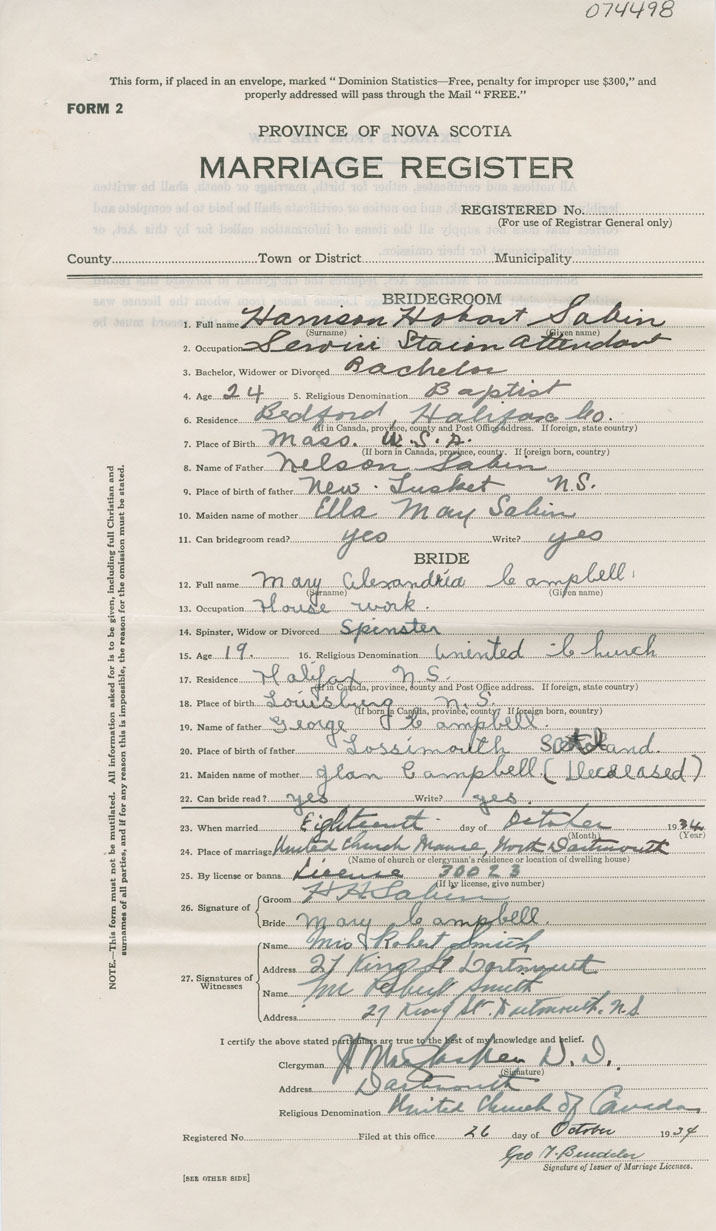 074498
This form, if placed in an envelope, marked " Dominion Statistics—Free, penalty for improper use $300," and
properly addressed will pass through the Mail " FREE."
FORM 2
PROVINCE OF NOVA SCOTIA
MARRIAGE REGISTER
REGISTERED No.
(For use of Registrar General only)
County Town or District Municipality
BRIDEGROOM
1. Full name Harrison Hobart Sabin
(Surname) (Given name)
2. Occupation Servise Staion Attendant
3. Bachelor, Widower or Divorced Bachelor
4. Age 24 5. Religious Denomination Baptist
6. Residence Bedford, Halifax Co.
(If in Canada, province, county and Post Office address. If foreign, state country)
7. Place of Birth Mass. U.S.A.
(If born in Canada, province, county. If foreign born, country)
8. Name of Father Nelson Sabin
9. Place of birth of father New Tusket N.S.
10. Maiden name of mother Ella May Sabin
11. Can bridegroom read? yes Write? yes
BRIDE
12. Full name Mary Alexandria Campbell
(Surname) (Given name)
13. Occupation House work.
14. Spinster, Widow or Divorced Spinster
15. Age 19. 16. Religious Denomination Uninted Church
17. Residence Halifax N.S.
(If in Canada, province, county and Post Office address. If foreign, state country)
18. Place of birth Louisburg N.S.
(If born in Canada, province, county? If foreign born, country)
19. Name of father George Campbell.
20. Place of birth of father Lossimouth Scotland.
21. Maiden name of mother Campbell (Deceased)
22. Can bride read? yes Write? yes.
23. When married Eighteenth day of October 1934
(Month) (Year)
24. Place of marriage United Church Manse, North Dartmouth
(Name of church or clergyman's residence or location of dwelling house)
25. By license or banns License 30023
(If by license, give number)
26. Signature of Groom H H Sabin
Bride Mary Campbell.
27. Signatures of Witnesses
Name Mrs Robert Smith
Address 27 King St Dartmouth
Name Mr Robert Smith
Address 27 King St. Dartmouth. N.S.
I certify the above stated particulars are true to the best of my knowledge and belief.
Clergyman D. D.
(Signature)
Address Dartmouth
Religious Denomination United Church of Canada
Registered No. Filed at this office 26 day of October 1934
Geo
Signature of Issuer of Marriage Licenses.
[SEE OTHER SIDE]
NOTE.—This form must not be mutilated. All information asked for is to be given, including full Christian and
surnames of all parties, and if for any reason this is impossible, the reason for the omission must be stated.